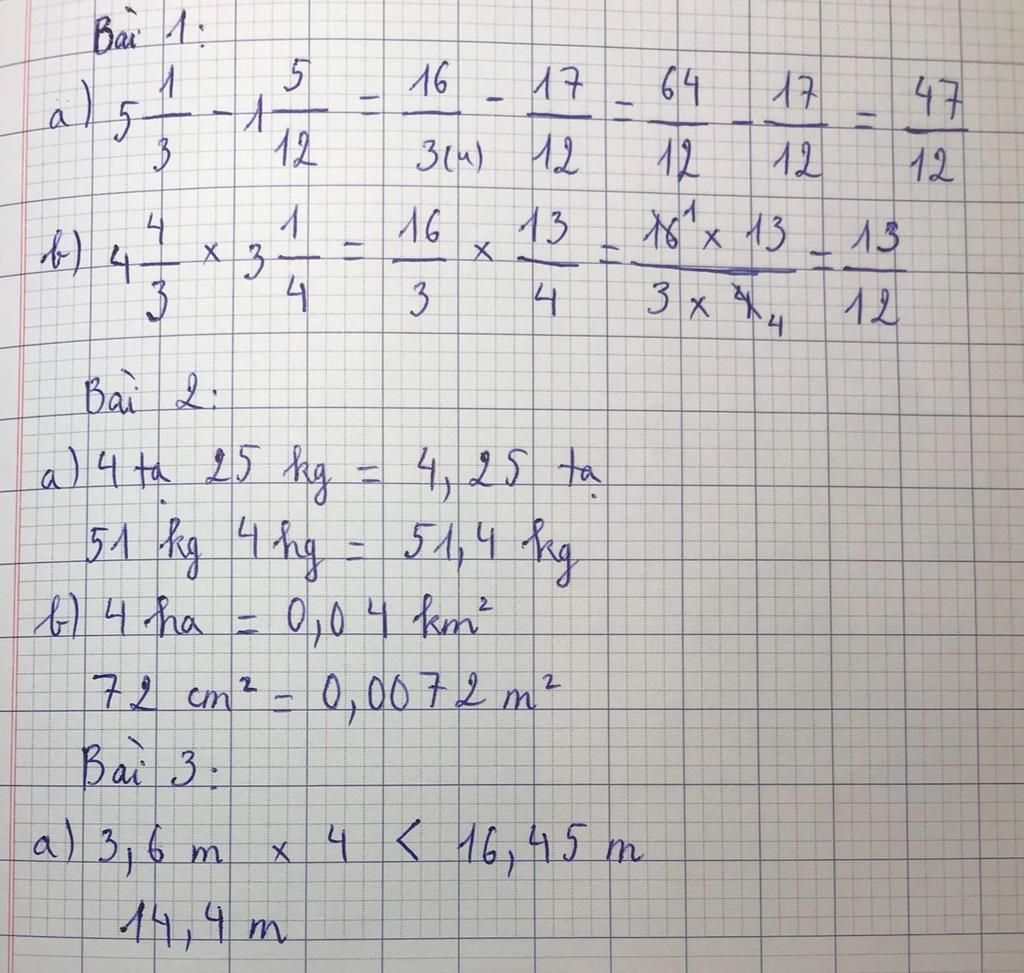 Bài 1:
a) 5 1/3 - 1 5/12 = 16/3(4) - 17/12 = 64/12 - 17/12 = 47/12
b) 4 4/3 × 3 1/4 = 16/3 × 13/4 = 16 1 × 13/3 × 4 4 = 13/12
Bài 2:
a) 4 tạ 25 kg = 4,25 tạ
51 kg 4 hg = 51,4 kg
b) 4 ha = 0,04 km²
72 cm² = 0,0072 m²
Bài 3:
a) 3,6 m × 4 < 16,45 m
14,4 m